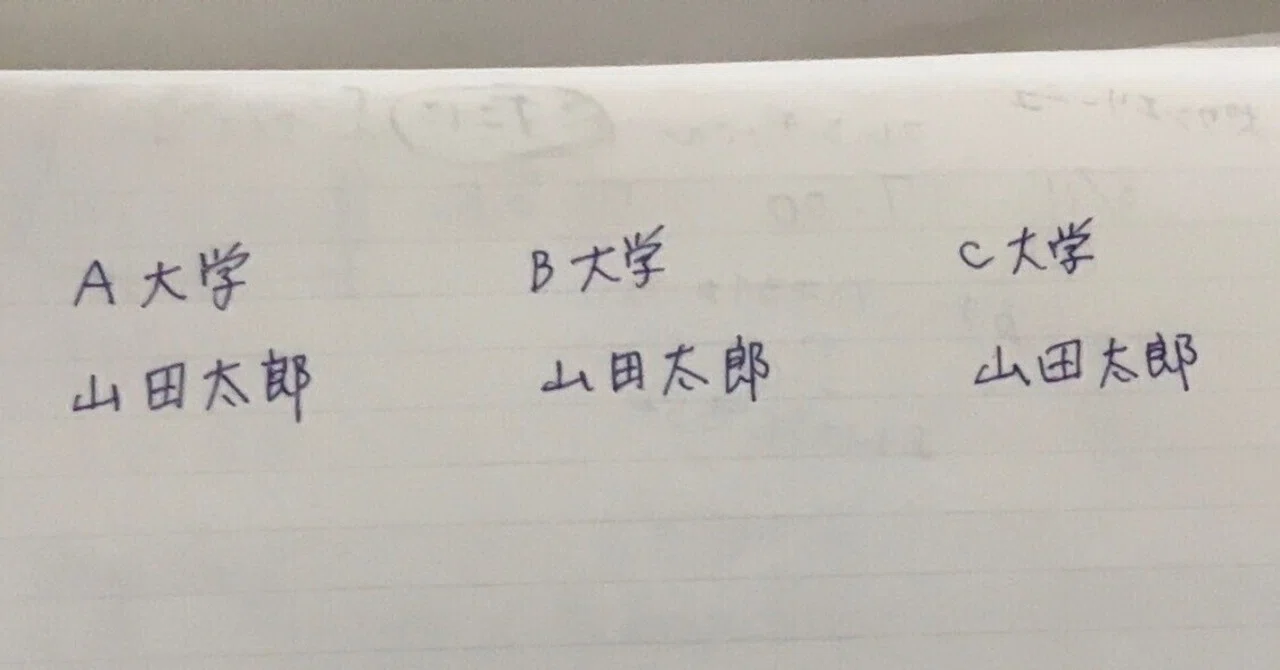 A大学 B大学 C大学
山田太郎 山田太郎 山田太郎